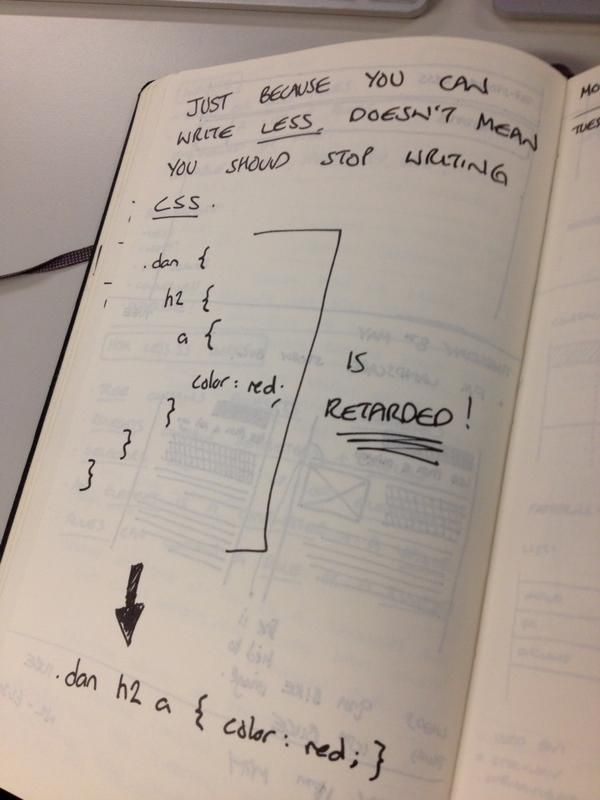 JUST BECAUSE YOU CAN
WRITE LESS, DOESN'T MEAN
YOU SHOULD STOP WRITING
CSS.
.dan {
h2 {
a {
color: red;
}
}
}
IS
RETARDED!
.dan h2 a { color: red; }
MO
TUES